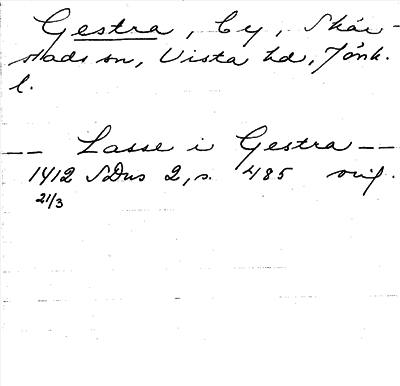 Gestra, by, Skär-
stads sn, Vista hd, Jönk.
l.
-- Lasse i Gestra --
1412 SDns 2, s. 485 orig.
21/3